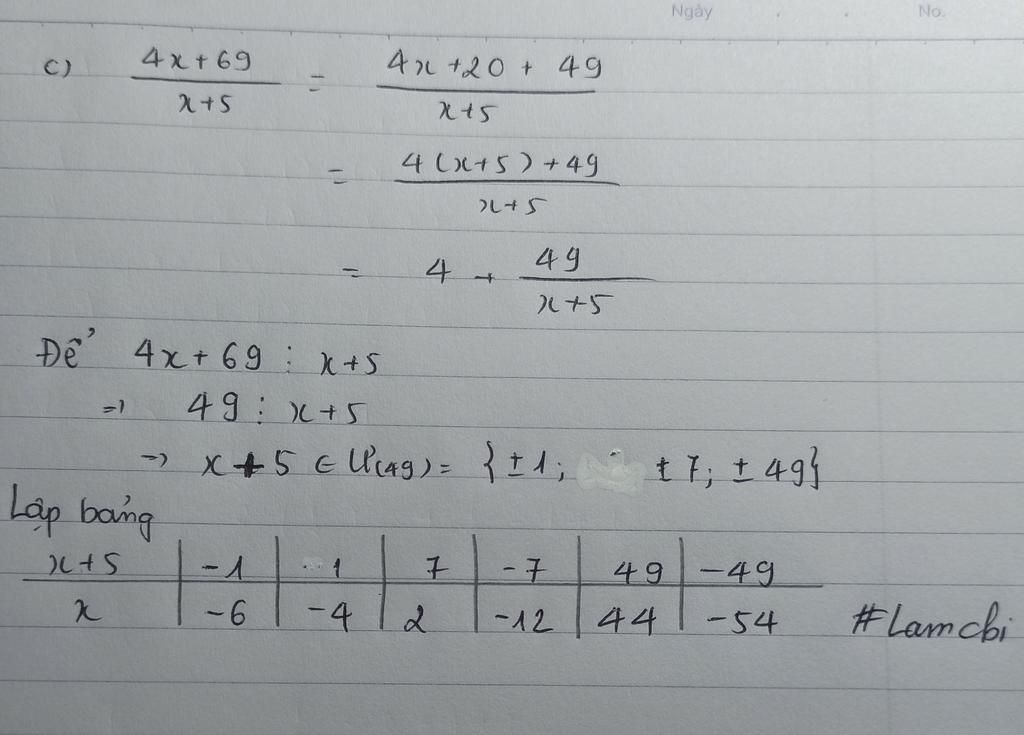 Ngày . . No.
c) \frac{4x+69}{x+5} = \frac{4x+20+49}{x+5}
= \frac{4(x+5)+49}{x+5}
= 4 + \frac{49}{x+5}
Để 4x+69 ⋮ x+5
=> 49 ⋮ x+5
-> x+5 ∈ Ư(49) = {±1; ±7; ±49}
Lập bảng
x+5 | -1 | 1 | 7 | -7 | 49 | -49
x | -6 | -4 | 2 | -12 | 44 | -54 #Lamcbi